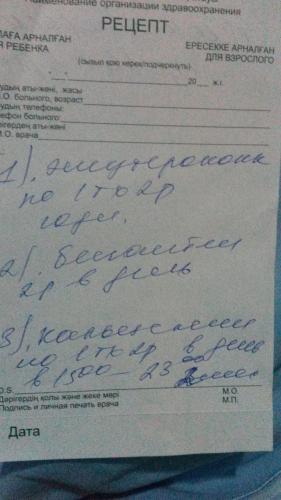 Наименование организации здравоохранения
РЕЦЕПТ
ЛАҒА АРНАЛҒАН
Я РЕБЕНКА
ЕРЕСЕККЕ АРНАЛҒАН
ДЛЯ ВЗРОСЛОГО
(сызып қою керек/подчеркнуть)
"___"____________20___ж.г.
удың аты-жөні, жасы
.О. больного, возраст
удың телефоны:
лефон больного:
рігердің аты-жөні
.О. врача
1).
по 1т х 2р
2).
2р в день
3).
по 1т х 2р в день
в 15 00 – 23 00
D.S.
Дәрігердің қолы және жеке мөрі
М.О.
Подпись и личная печать врача
М.П.
Дата